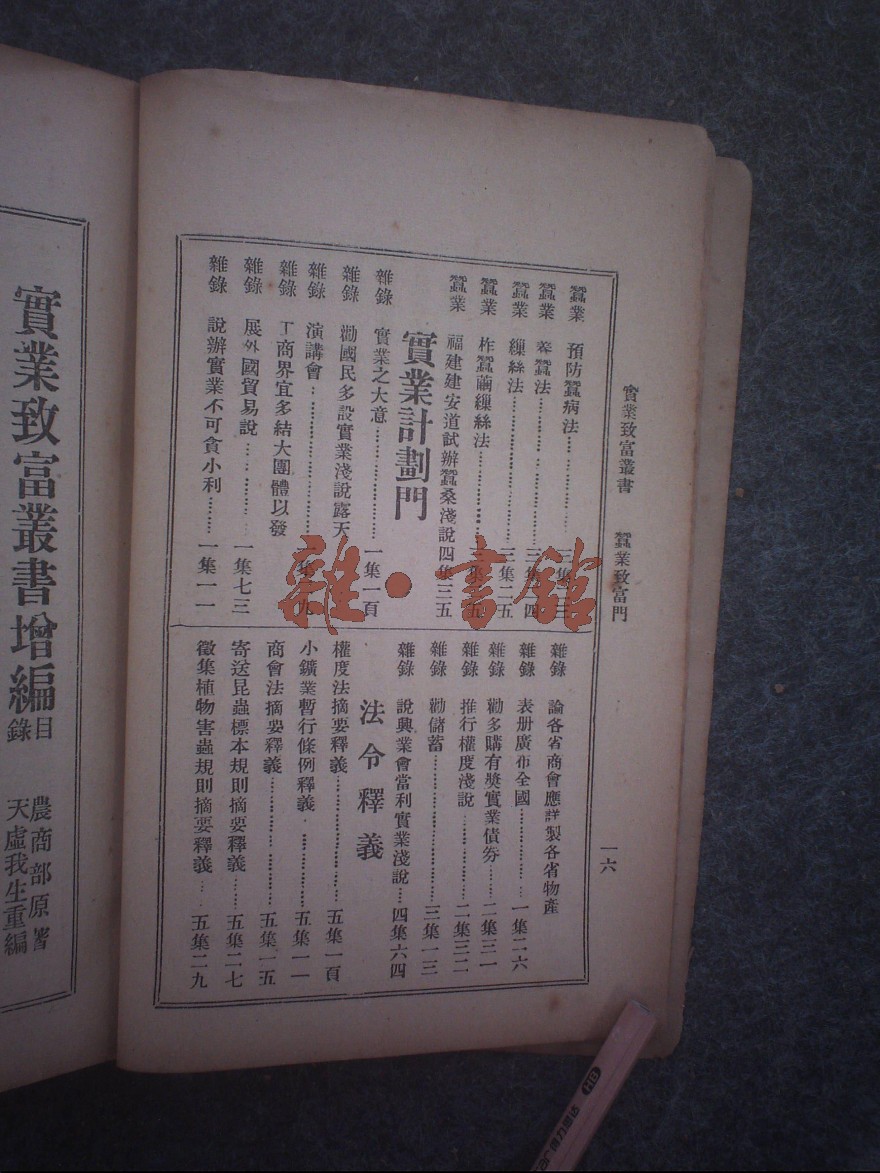 實業致富叢書 蠶業致富門 一六
蠶業 預防蠶病法
蠶業 養蠶法
蠶業 繅絲法 三集二五
蠶業 柞蠶繭繅絲法
蠶業 福建建安道試辦蠶桑淺說四集三五
實業計劃門
雜錄 實業之大意 一集一頁
雜錄 勸國民多設實業淺說露天
雜錄 演講會
雜錄 工商界宜多結大團體以發
雜錄 展外國貿易說 一集七三
雜錄 說辦實業不可貪小利 一集一一
雜錄 論各省商會應詳製各省物產
雜錄 表册廣布全國 一集二六
雜錄 勸多購有獎實業債券 二集三一
雜錄 推行權度淺說 二集三二
雜錄 勸儲蓄 三集一三
雜錄 說興業會當利實業淺說 四集六四
法令釋義
權度法摘要釋義 五集一頁
小鑛業暫行條例釋義 五集一一
商會法摘要釋義 五集一五
寄送昆蟲標本規則摘要釋義 五集二七
徵集植物害蟲規則摘要釋義 五集二九
實業致富叢書增編目錄
農商部原著
天虛我生重編
雜·書館
HB